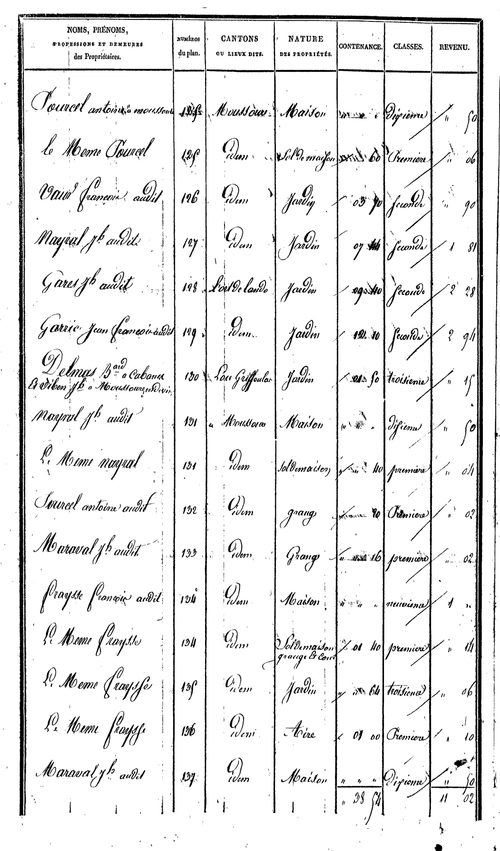 NOMS, PRÉNOMS, PROFESSIONS ET DEMEURES des Propriétaires. NUMÉROS du plan. CANTONS OU LIEUX DITS. NATURE DES PROPRIÉTÉS. CONTENANCE. CLASSES. REVENU.
Sourcel antoine a moussours 125 Moussours Maison dixieme " 50
le Meme Sourcel 125 Idem Sol de maison 60 Premiere " 06
francois audit 126 Idem Jardin 03 70 Seconde " 90
Mayral Jh audit 127 Idem Jardin 07 Seconde 1 81
Gares Jh audit 128 Jardin 09 40 Seconde 2 28
Garric Jean francois audit 129 Idem Jardin 12 10 Seconde 2 94
Delmas Bard a Cabanes
130 Lou Griffoulas Jardin 01 50 troisieme " 15
Mayral Jh audit 131 Moussours Maison " " " dixieme " 50
Le Meme mayral 131 Idem sol de maison 40 premiere " 04
Sourcel antoine audit 132 Idem grange 20 Premiere " 02
Maraval Jh audit 133 Idem Grange 16 premiere " 02
fraysse francois audit 134 Idem Maison " " " neuvieme 1 "
Le Meme fraysse 134 Idem Sol de maison 01 40 premiere " 14
grange et Cour
Le Meme fraysse 135 Idem Jardin 64 troisieme " 06
Le Meme fraysse 136 Idem Aire 01 00 Premiere " 10
Maraval Jh audit 137 Idem Maison " " " dixieme " 50
" 38 54 11 02